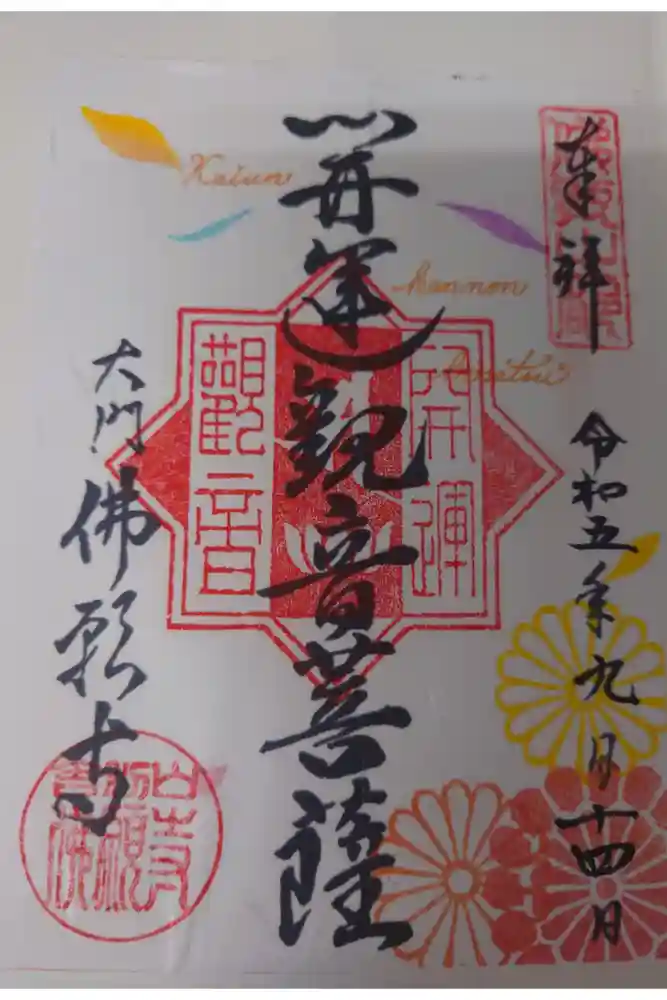 奉拝
令和五年九月十四日
開運観音菩薩
Kaiun
kannon
bosatsu
開運
觀音
大門
佛願寺